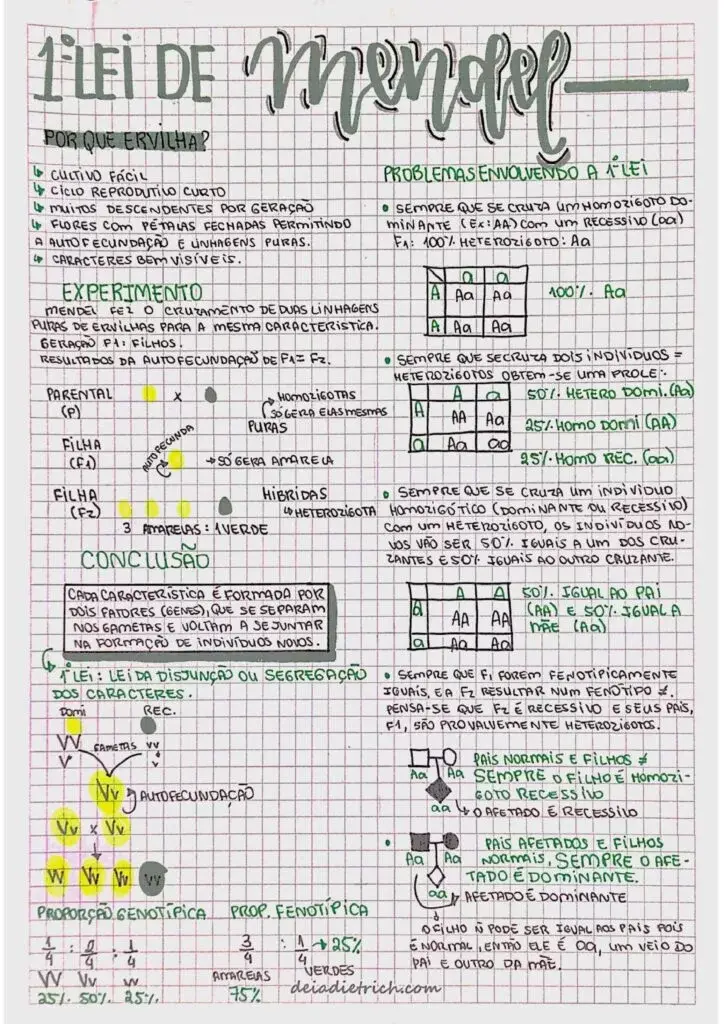 1ª LEI DE mendel
POR QUE ERVILHA?
↳ CULTIVO FÁCIL
↳ CICLO REPRODUTIVO CURTO
↳ MUITOS DESCENDENTES POR GERAÇÃO
↳ FLORES COM PÉTALAS FECHADAS PERMITINDO
A AUTOFECUNDAÇÃO E LINHAGENS PURAS.
↳ CARACTERES BEM VISÍVEIS.
EXPERIMENTO
MENDEL FEZ O CRUZAMENTO DE DUAS LINHAGENS
PURAS DE ERVILHAS PARA A MESMA CARACTERÍSTICA.
GERAÇÃO F1: FILHOS.
RESULTADOS DA AUTOFECUNDAÇÃO DE F1 = F2.
PARENTAL
(P)
x
→ HOMOZIGOTAS
SÓ GERA ELAS MESMAS
PURAS
FILHA
(F1)
AUTOFECUNDA
→ SÓ GERA AMARELA
FILHA
(F2)
HÍBRIDAS
↳ HETEROZIGOTA
3 AMARELAS : 1 VERDE
CONCLUSÃO
CADA CARACTERÍSTICA É FORMADA POR
DOIS FATORES (GENES), QUE SE SEPARAM
NOS GAMETAS E VOLTAM A SE JUNTAR
NA FORMAÇÃO DE INDIVÍDUOS NOVOS.
1ª LEI: LEI DA DISJUNÇÃO OU SEGREGAÇÃO
DOS CARACTERES.
DOMI REC.
VV GAMETAS vv
V v
Vv AUTOFECUNDAÇÃO
Vv x Vv
VV Vv Vv vv
PROPORÇÃO GENOTÍPICA
1/4 : 2/4 : 1/4
VV Vv vv
25%. 50%. 25%.
PROP. FENOTÍPICA
3/4 : 1/4 → 25%
AMARELAS VERDES
75%
PROBLEMAS ENVOLVENDO A 1ª LEI
• SEMPRE QUE SE CRUZA UM HOMOZIGOTO DO-
MINANTE (EX: AA) COM UM RECESSIVO (aa)
F1: 100% HETEROZIGOTO: Aa
a a
A Aa Aa
A Aa Aa
100%. Aa
• SEMPRE QUE SE CRUZA DOIS INDIVÍDUOS =
HETEROZIGOTOS OBTEM-SE UMA PROLE:
A a
A AA Aa
a Aa aa
50%. HETERO DOMI. (Aa)
25% HOMO DOMI (AA)
25%. HOMO REC. (aa)
• SEMPRE QUE SE CRUZA UM INDIVÍDUO
HOMOZIGÓTICO (DOMINANTE OU RECESSIVO)
COM UM HETEROZIGOTO, OS INDIVÍDUOS NO-
VOS VÃO SER 50% IGUAIS A UM DOS CRU-
ZANTES E 50% IGUAIS AO OUTRO CRUZANTE.
A A
A AA AA
a Aa Aa
50%. IGUAL AO PAI
(AA) E 50% IGUAL A
MÃE (Aa)
• SEMPRE QUE F1 FOREM FENOTIPICAMENTE
IGUAIS, E A F2 RESULTAR NUM FENÓTIPO ≠.
PENSA-SE QUE F2 É RECESSIVO E SEUS PAIS,
F1, SÃO PROVALVEMENTE HETEROZIGOTOS.
Aa Aa
aa
PAIS NORMAIS E FILHOS ≠
SEMPRE O FILHO É HOMOZI-
GOTO RECESSIVO
↳ O AFETADO É RECESSIVO
•
Aa Aa
aa
PAIS AFETADOS E FILHOS
NORMAIS, SEMPRE O AFE-
TADO É DOMINANTE.
AFETADO É DOMINANTE
O FILHO Ñ PODE SER IGUAL AOS PAIS POIS
É NORMAL, ENTÃO ELE É aa, UM VEIO DO
PAI E OUTRO DA MÃE.
deiadietrich.com